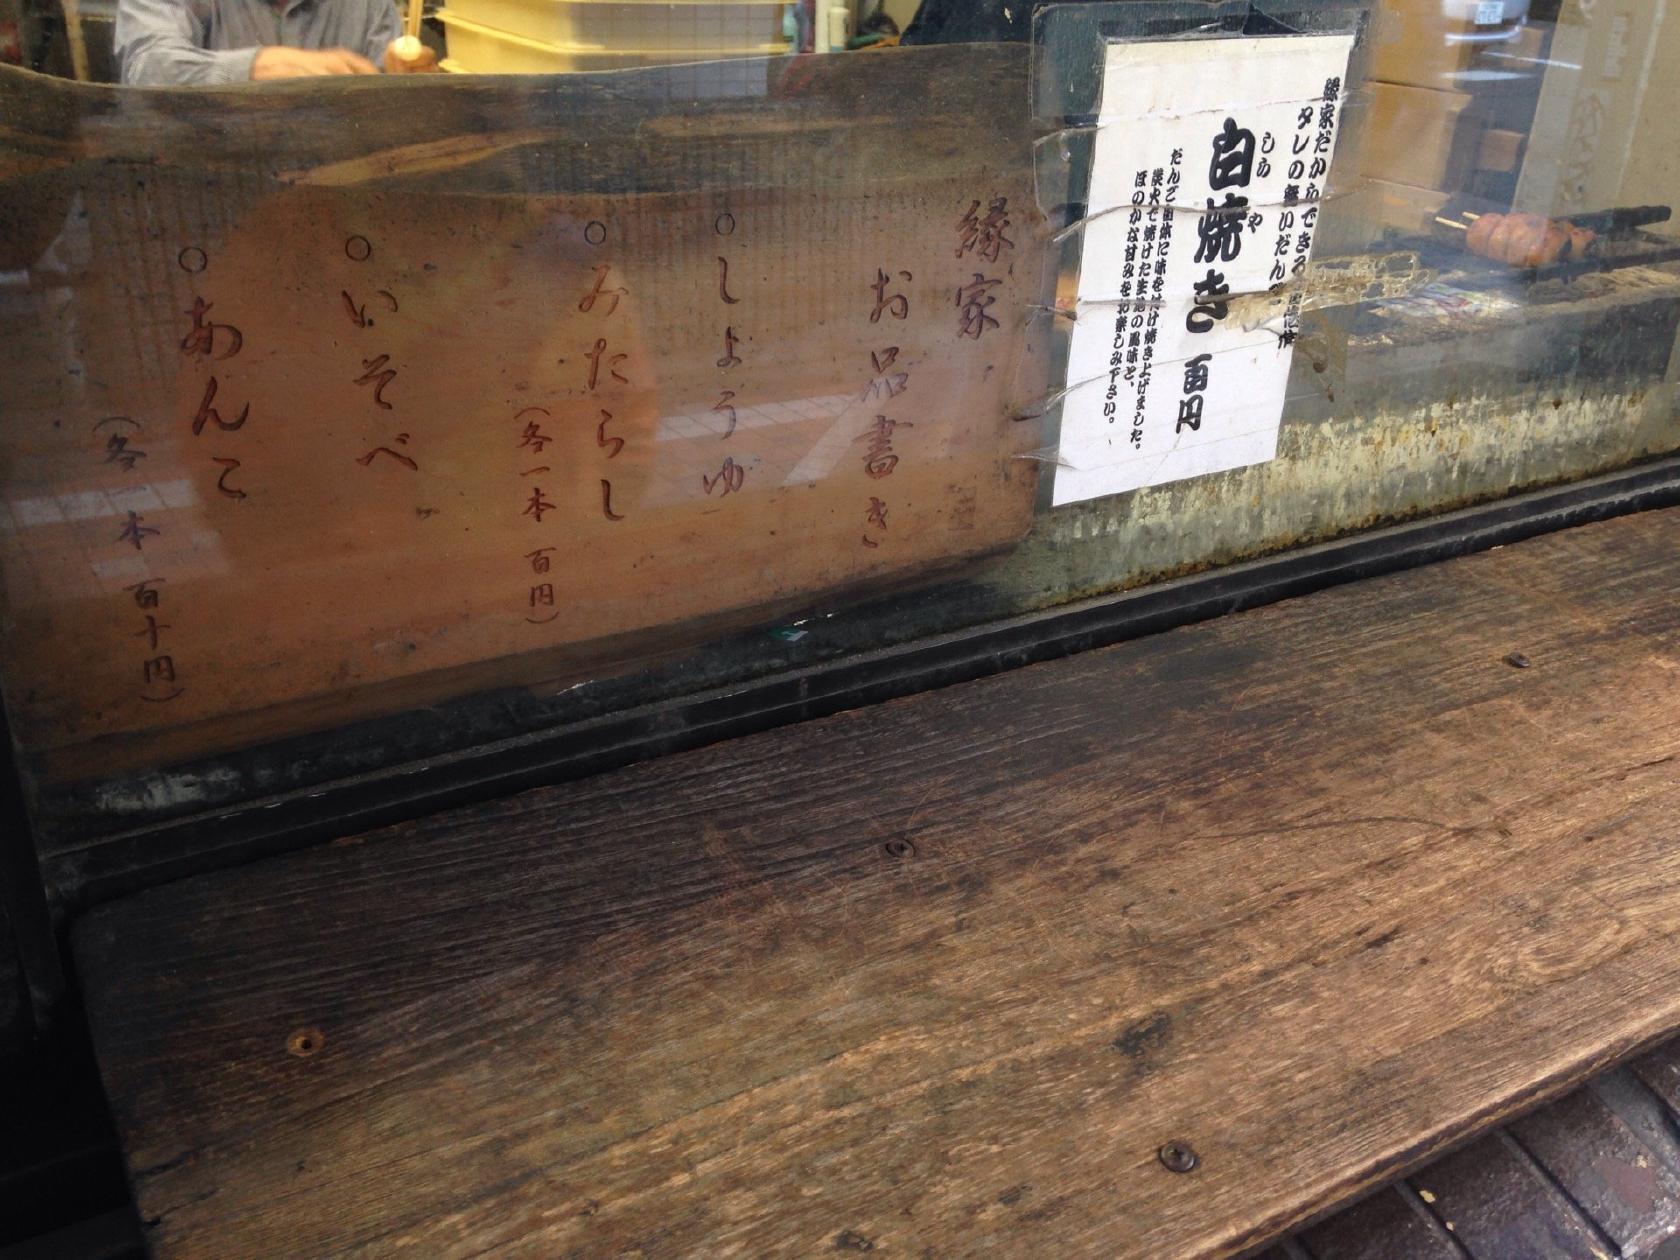 縁家だからできる
タレの無いだんご
しらや
白焼き 百円
だんご自体に味を付け焼き上げました。
炭火で焼けた生地の風味と、
ほのかな甘みをお楽しみ下さい。
縁家
お品書き
○しょうゆ
○みたらし
(各一本 百円)
○いそべ
○あんこ
(各 本 百十円)